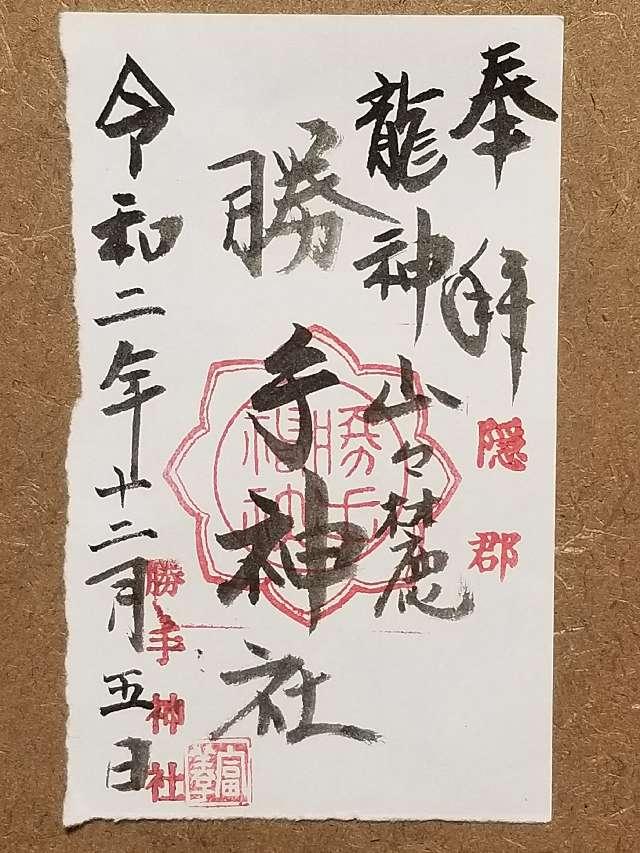 奉拝
隠郡
龍神山々麓
勝手神社
勝手神社
令和二年十二月五日
勝手神社